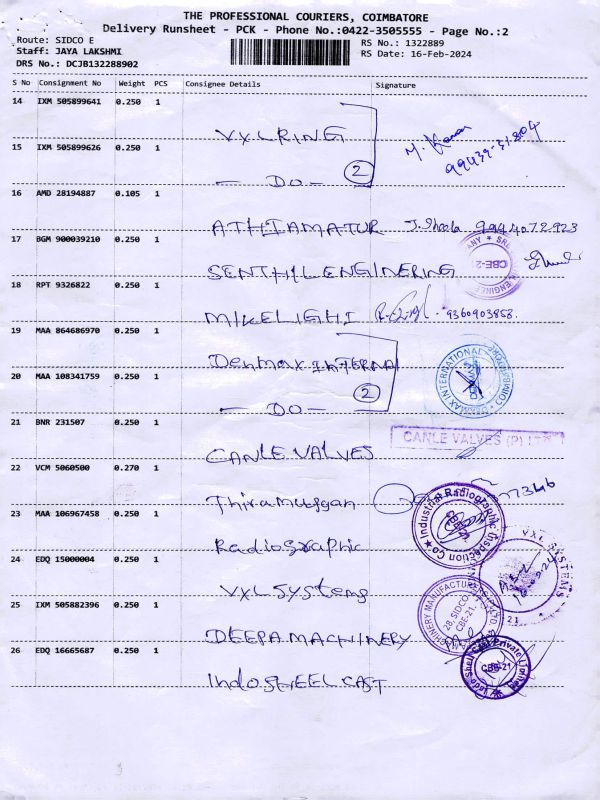 THE PROFESSIONAL COURIERS, COIMBATORE
Delivery Runsheet - PCK - Phone No.:0422-3505555 - Page No.:2
Route: SIDCO E
RS No.: 1322889
Staff: JAYA LAKSHMI
RS Date: 16-Feb-2024
DRS No.: DCJB132288902
S No Consignment No Weight PCS Consignee Details Signature
14 IXM 505899641 0.250 1
VXLRING
15 IXM 505899626 0.250 1
2
- DO -
16 AMD 28194887 0.105 1
ATHIAMATUR J. Sheela 9944072923
17 BGM 900039210 0.250 1
CBE-2
SENTHIL ENGINERING
18 RPT 9326822 0.250 1
MIKELIGHI 9360903858.
19 MAA 864686970 0.250 1
Denmax INTERNA
DENMAX INTERNATIONAL
COIMBATORE
20 MAA 108341759 0.250 1
2
- DO -
21 BNR 231507 0.250 1
CANLE VALVES (P)
CANLE VALVES
22 VCM 5060500 0.270 1
Thiramurgan
Industrial Radiographic Inspection Co
23 MAA 106967458 0.250 1
Radiographic
VXL SYSTEMS
24 EDQ 15000004 0.250 1
VXLSystems
25 IXM 505882396 0.250 1
28, SIDCO,
CBE-21.
DEEPA MACHINERY
26 EDQ 16665687 0.250 1
Indo Shell Cast Private Limited
CBE-21
IndoSHEELCAST